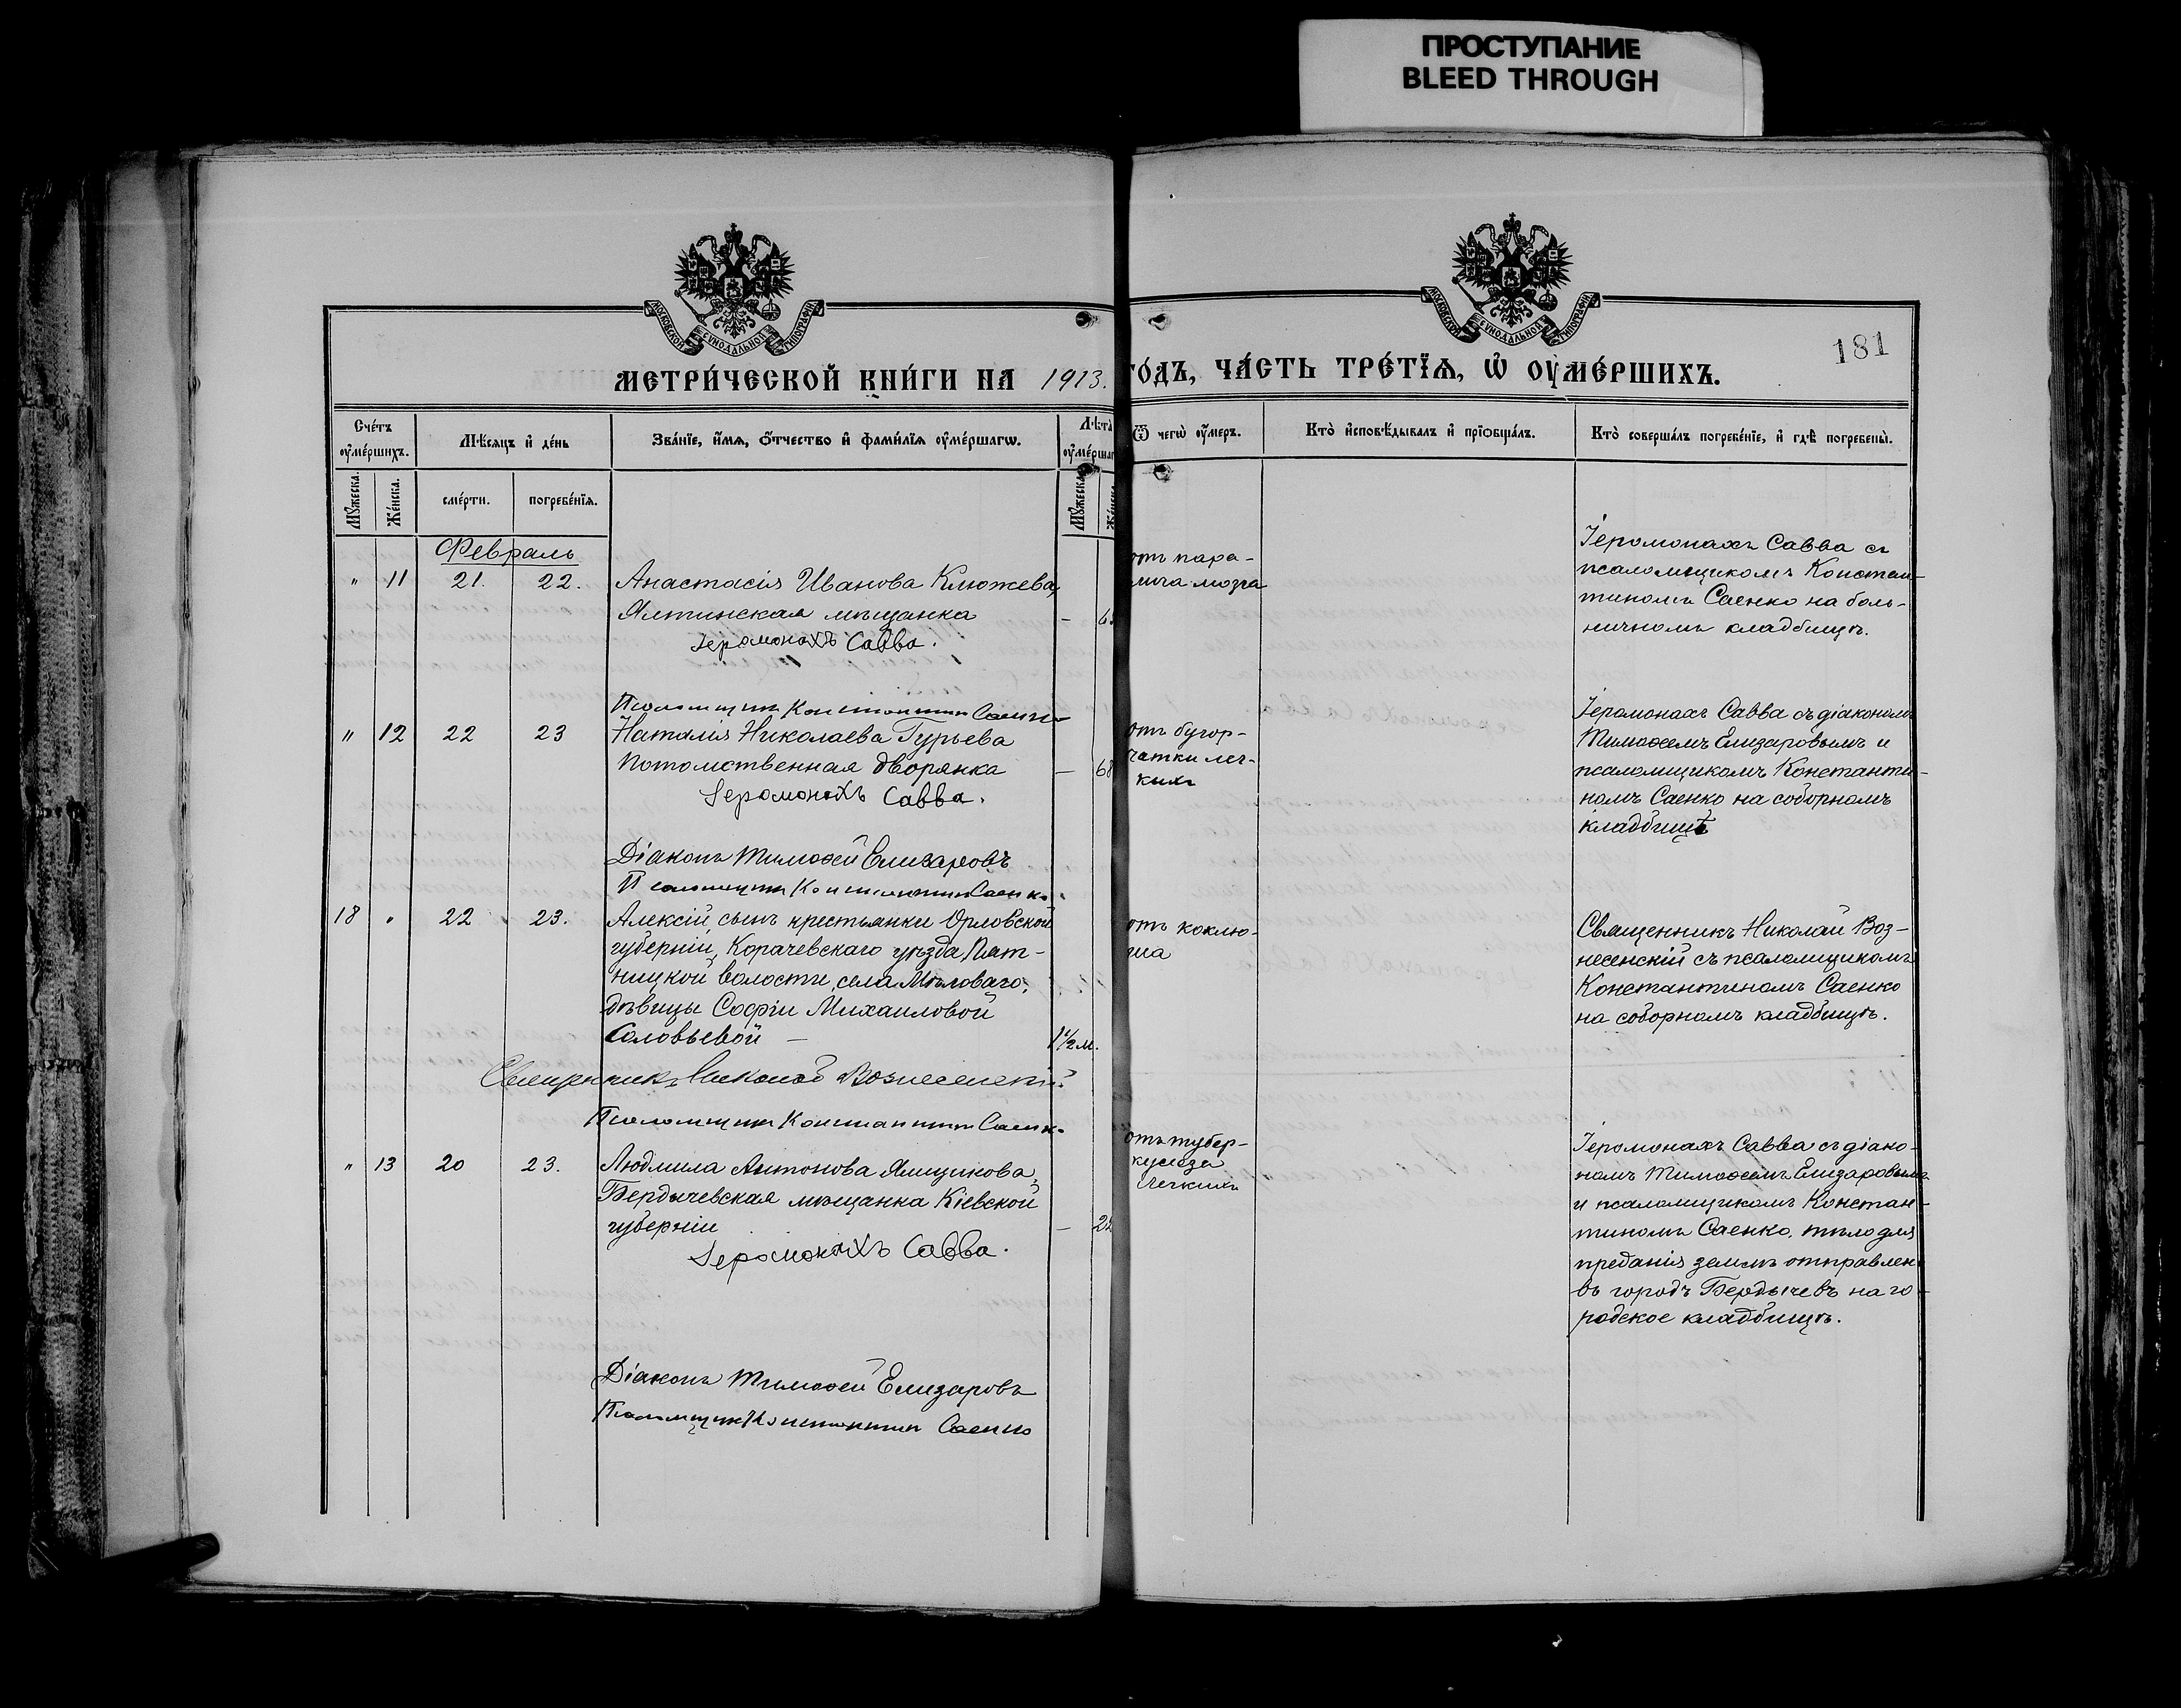 ПРОСТУПАНИЕ
BLEED THROUGH
МОСКОВСКОЙ СѴНОДАЛЬНОЙ ТИПОГРАФІИ
МОСКОВСКОЙ СѴНОДАЛЬНОЙ ТИПОГРАФІИ
181
МЕТРИ́ЧЕСКОЙ КНИ́ГИ НА 1913. ГО́ДЪ, ЧА́СТЬ ТРЕ́ТЇѦ, Ѡ҆ ОУ҆МЕ́РШИХЪ.
Сче́тъ оу҆ме́ршихъ.
Мѣ́сяцъ и҆ де́нь
Зва́нїе, и҆́мя, ѻ҆́тчество и҆ фами́лїя оу҆ме́ршагѡ.
Лѣ́та оу҆ме́ршаг
Ѿ чегѡ̀ оу҆́меръ.
Кто̀ и҆сповѣ́дывалъ и҆ прїѡбща́лъ.
Кто̀ соверша́лъ погребе́нїе, и҆ гдѣ̀ погребены̀.
Мꙋ́жеска.
Же́нска.
сме́рти.
погребе́нїя.
Мꙋ́жеска.
Же́нска.
Февраль
" 11 21. 22. Анастасія Иванова Клюжева,
Ялтинская мѣщанка —
Іеромонахъ Савва.
отъ пара-
лича мозга
Іеромонахъ Савва съ
псаломщикомъ Констан-
тиномъ Саенко на боль-
ничномъ кладбищѣ.
Псаломщикъ Константин Саенко
" 12 22 23 Наталія Николаева Гурьева
потомственная дворянка — 68
Іеромонахъ Савва.
Діаконъ Тимоѳей Елизаровъ
Псаломщикъ Константин Саенко
отъ бугор-
чатки лег-
кихъ
Іеромонахъ Савва съ діакономъ
Тимоѳемъ Елизаровымъ и
псаломщикомъ Константи-
номъ Саенко на соборномъ
кладбищѣ
18 " 22 23. Алексій, сынъ крестьянки Орловской
губерніи, Корачевскаго уѣзда, Пят-
ницкой волости, села Мѣловаго,
дѣвицы Софіи Михаиловой
Соловьевой — 1 1/2 м.
Священникъ Николай Вознесенскій
Псаломщикъ Константин Саенко
отъ коклю-
ша
Священникъ Николай Воз-
несенскій съ псаломщикомъ
Константиномъ Саенко
на соборномъ кладбищѣ.
" 13 20 23. Людмила Антонова Ямщикова,
Бердичевская мѣщанка Кіевской
губерніи —
Іеромонахъ Савва.
Діаконъ Тимоѳей Елизаровъ
Псаломщикъ Константин Саенко
отъ тубер-
кулеза
легкихъ
Іеромонахъ Савва съ діако-
номъ Тимоѳемъ Елизаровымъ
и псаломщикомъ Констан-
тиномъ Саенко, тѣло для
преданія землѣ отправлен
въ городъ Бердычевъ на го-
родское кладбищѣ.